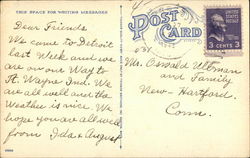 THIS SPACE FOR WRITING MESSAGES
POST CARD
UNITED STATES POSTAGE
3 CENTS 3
Dear Friends
We came to Detroit
last Week and we
are on our Way to
Ft. Wayne Ind. We
are all well and the
Weather is nice. We
hope you are all well
from Ida & August
Mr. Oswald Ultman
and Family
New-Hartford.
Conn.